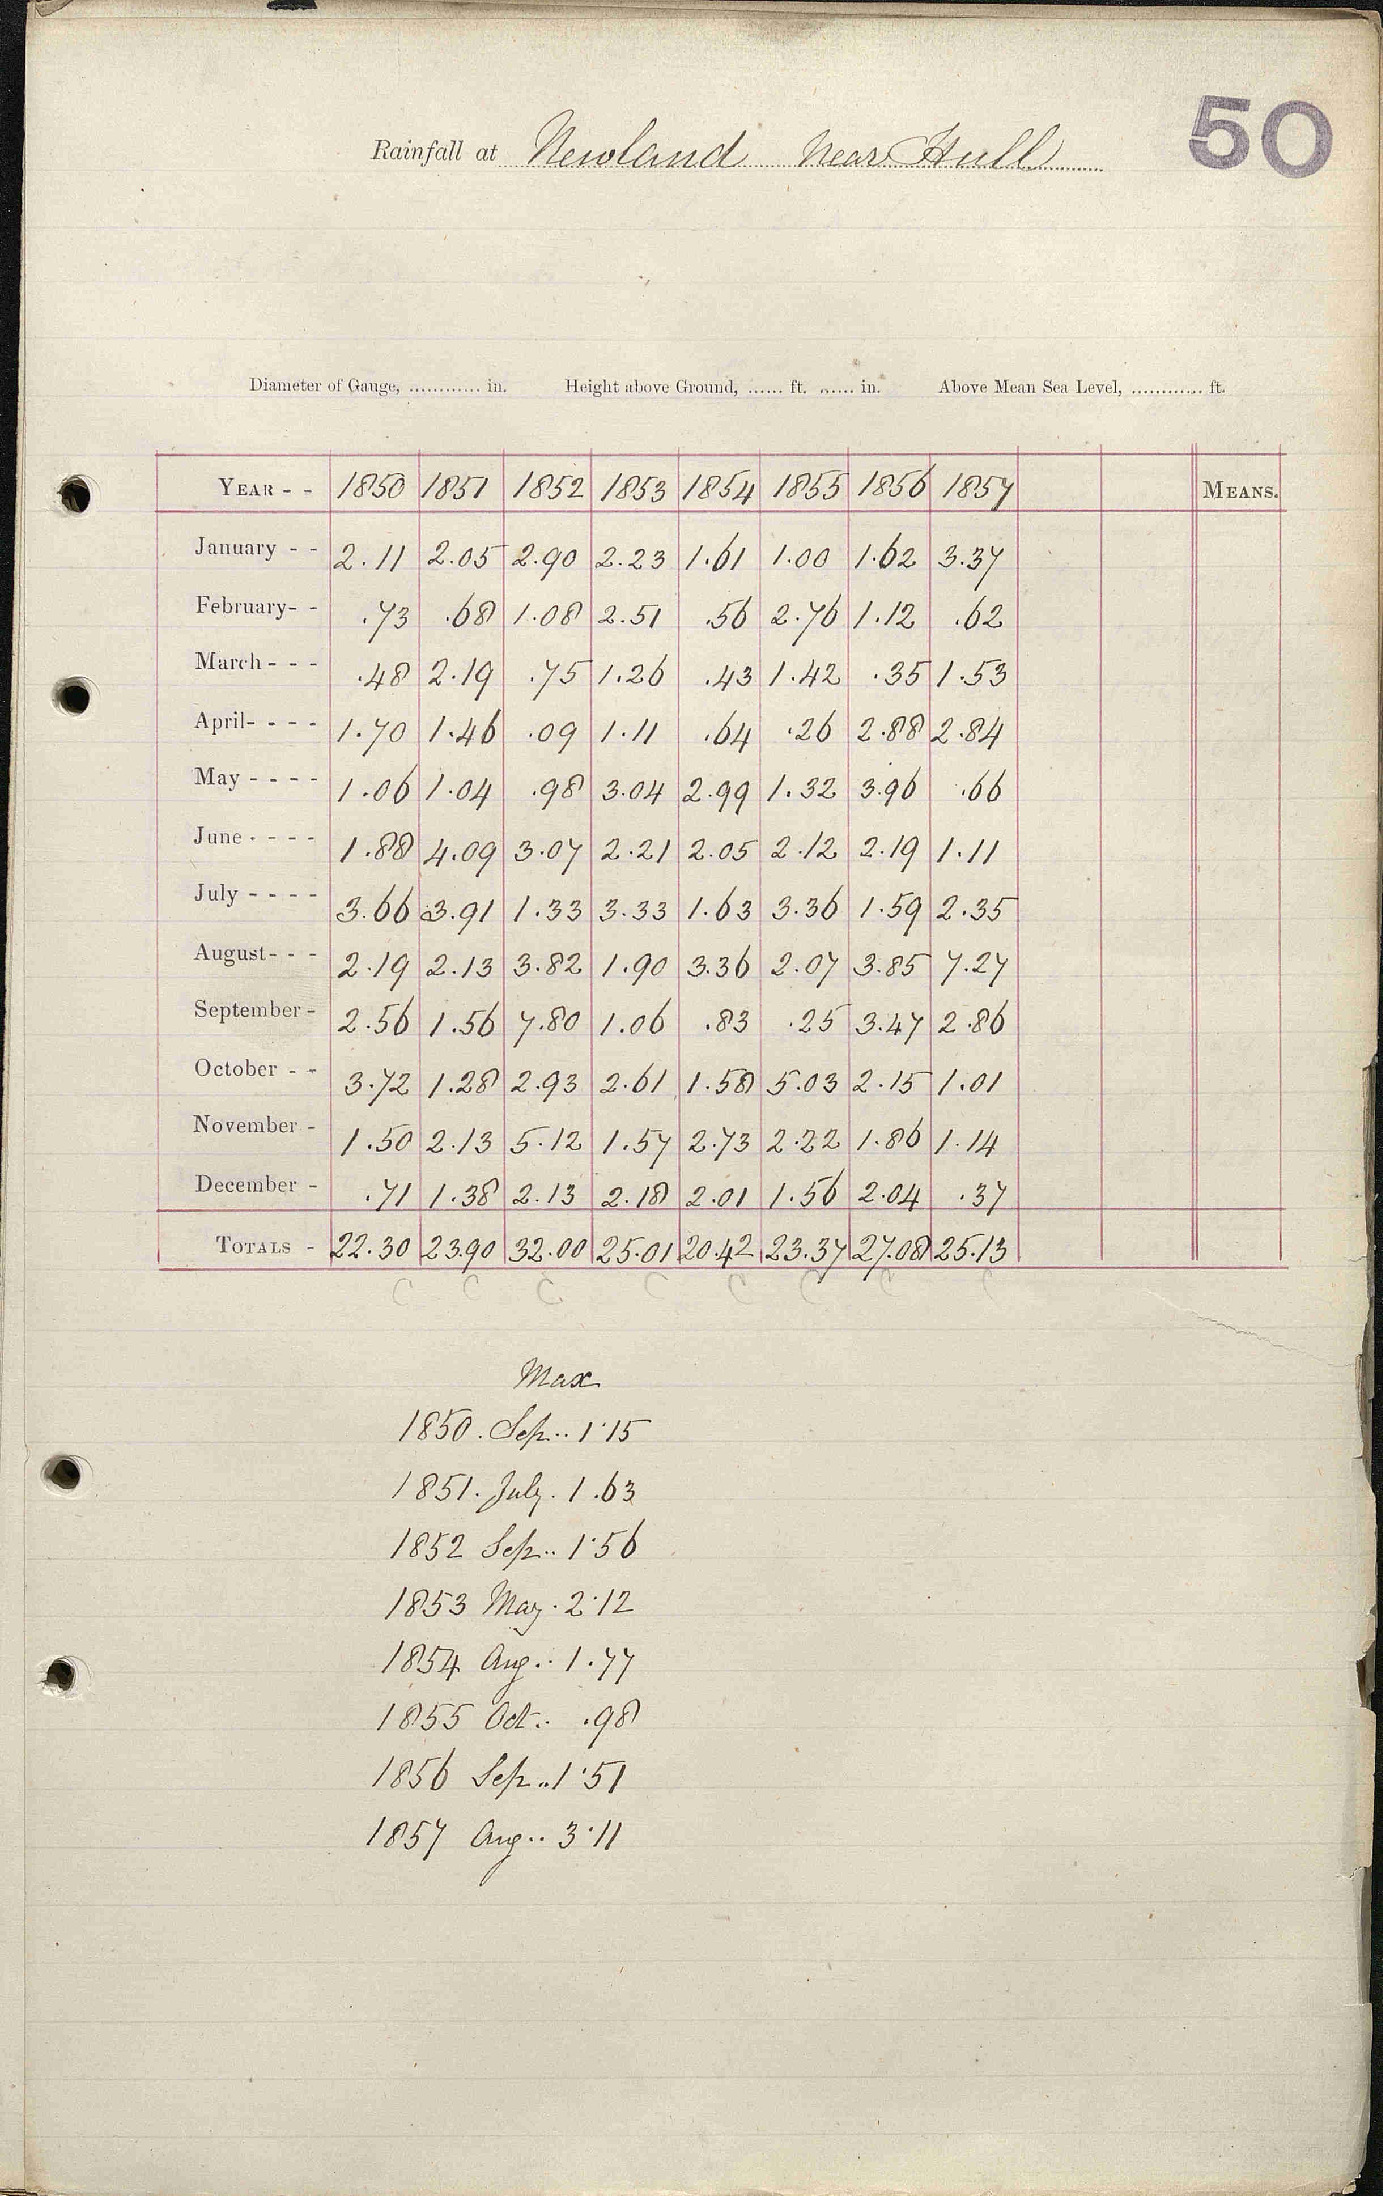 50
Rainfall at Newland near Hull
Diameter of Gauge, ............ in. Height above Ground, ...... ft. ...... in. Above Mean Sea Level, ............ ft.
YEAR - - 1850 1851 1852 1853 1854 1855 1856 1857 MEANS.
January - - 2.11 2.05 2.90 2.23 1.61 1.00 1.62 3.37
February- - .73 .68 1.08 2.51 .56 2.76 1.12 .62
March - - - .48 2.19 .75 1.26 .43 1.42 .35 1.53
April- - - - 1.70 1.46 .09 1.11 .64 .26 2.88 2.84
May - - - - 1.06 1.04 .98 3.04 2.99 1.32 3.96 .66
June - - - - 1.88 4.09 3.07 2.21 2.05 2.12 2.19 1.11
July - - - - 3.66 3.91 1.33 3.33 1.63 3.36 1.59 2.35
August- - - 2.19 2.13 3.82 1.90 3.36 2.07 3.85 7.27
September - 2.56 1.56 7.80 1.06 .83 .25 3.47 2.86
October - - 3.72 1.28 2.93 2.61 1.58 5.03 2.15 1.01
November - 1.50 2.13 5.12 1.57 2.73 2.22 1.86 1.14
December - .71 1.38 2.13 2.18 2.01 1.56 2.04 .37
TOTALS - 22.30 23.90 32.00 25.01 20.42 23.37 27.08 25.13
C C C C C C C C
Max
1850. Sep.. 1.15
1851. July. 1.63
1852 Sep.. 1.56
1853 May. 2.12
1854 Aug.. 1.77
1855 Oct.. .98
1856 Sep.. 1.51
1857 Aug.. 3.11